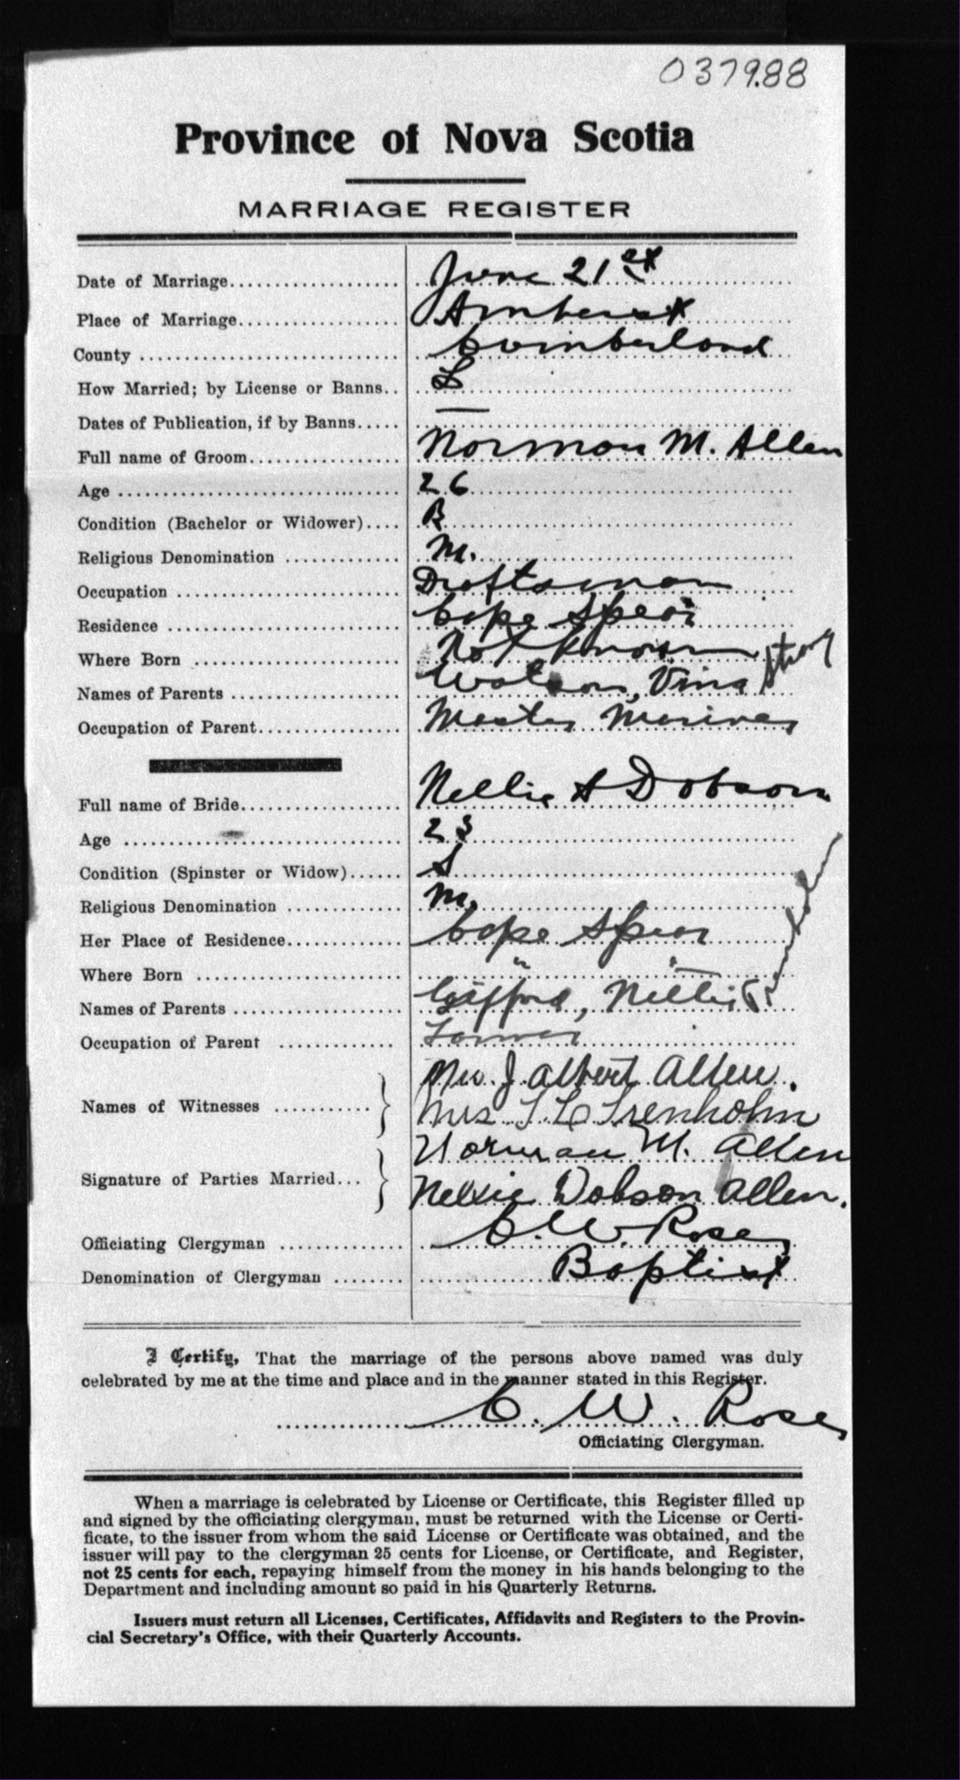 037988
Province of Nova Scotia
MARRIAGE REGISTER
Date of Marriage................... June 21st
Place of Marriage.................. Amherst
County ............................ Cumberland
How Married; by License or Banns.. L
Dates of Publication, if by Banns..... —
Full name of Groom.................. Norman M. Allen
Age ................................ 26
Condition (Bachelor or Widower).... B
Religious Denomination ............. M.
Occupation ......................... Draftsman
Residence .......................... Cape Spear
Where Born ......................... Not Known
Names of Parents ................... Watson, Vina
Occupation of Parent................ Master Mariner
Full name of Bride.................. Nellie A Dobson
Age ................................ 23
Condition (Spinster or Widow)...... S
Religious Denomination ............. M.
Her Place of Residence.............. Cape Spear
Where Born ......................... " "
Names of Parents ................... Gifford, Nellie Trenholm
Occupation of Parent ............... Farmer
Names of Witnesses ........... } J. Albert Allen.
Mrs T. L Trenholm
Signature of Parties Married... } Norman M. Allen
Nellie Dobson Allen.
Officiating Clergyman .............. C. W. Rose
Denomination of Clergyman ........ Baptist
I Certify, That the marriage of the persons above named was duly
celebrated by me at the time and place and in the manner stated in this Register.
C. W. Rose
Officiating Clergyman.
When a marriage is celebrated by License or Certificate, this Register filled up
and signed by the officiating clergyman, must be returned with the License or Certi-
ficate, to the issuer from whom the said License or Certificate was obtained, and the
issuer will pay to the clergyman 25 cents for License, or Certificate, and Register,
not 25 cents for each, repaying himself from the money in his hands belonging to the
Department and including amount so paid in his Quarterly Returns.
Issuers must return all Licenses, Certificates, Affidavits and Registers to the Provin-
cial Secretary's Office, with their Quarterly Accounts.